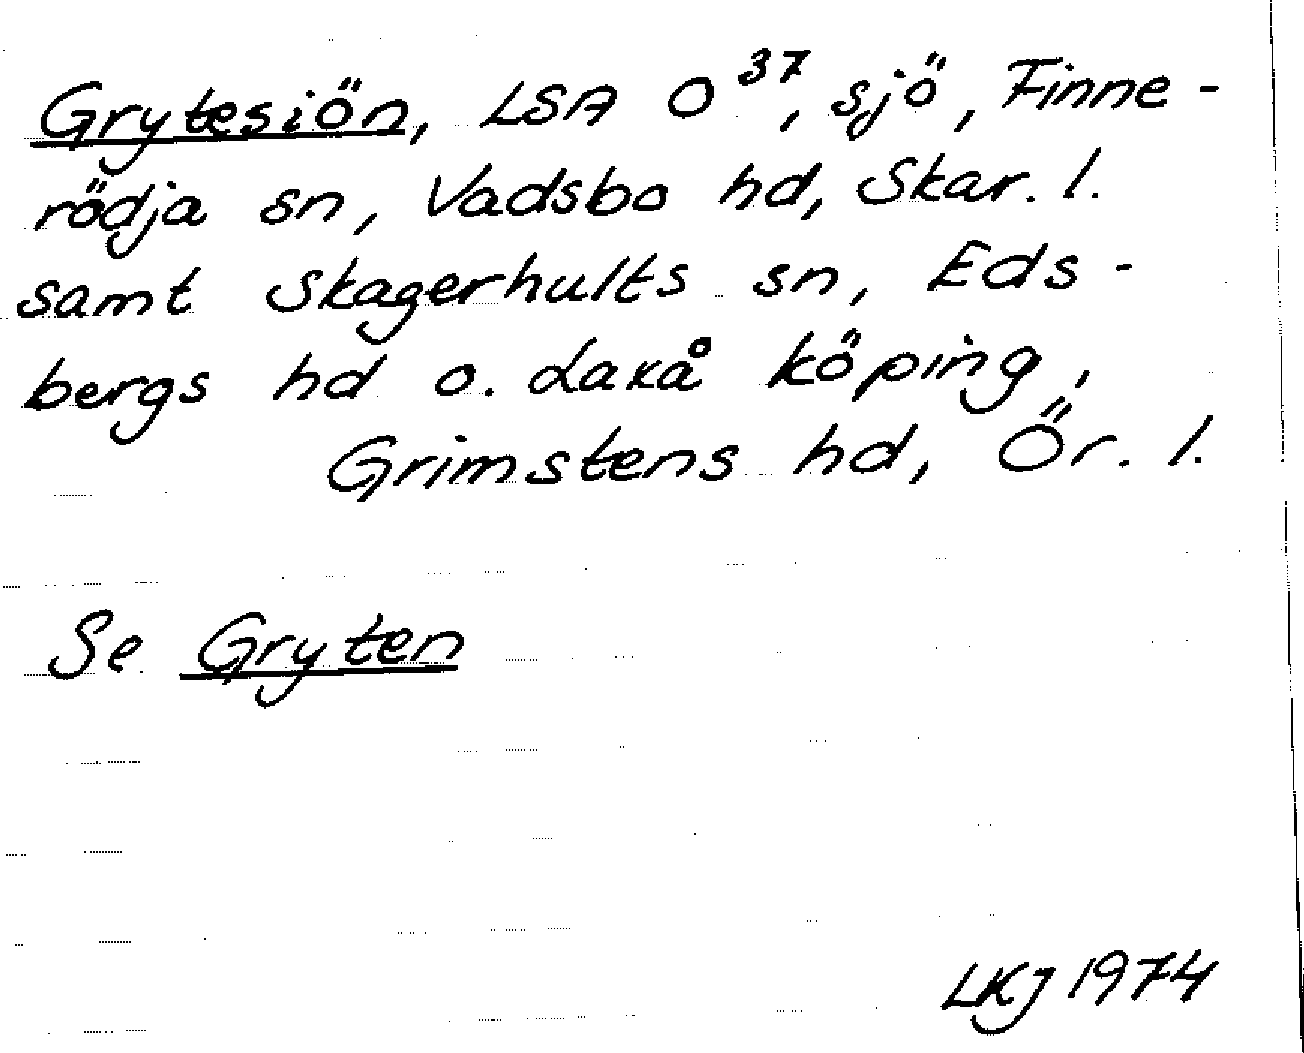 Grytesiön, LSA O 37, sjö, Finne-
rödja sn, Vadsbo hd, Skar. l.
samt Skagerhults sn, Eds-
bergs hd o. Laxå köping,
Grimstens hd, Ör. l.
Se Gryten
LKJ 1974